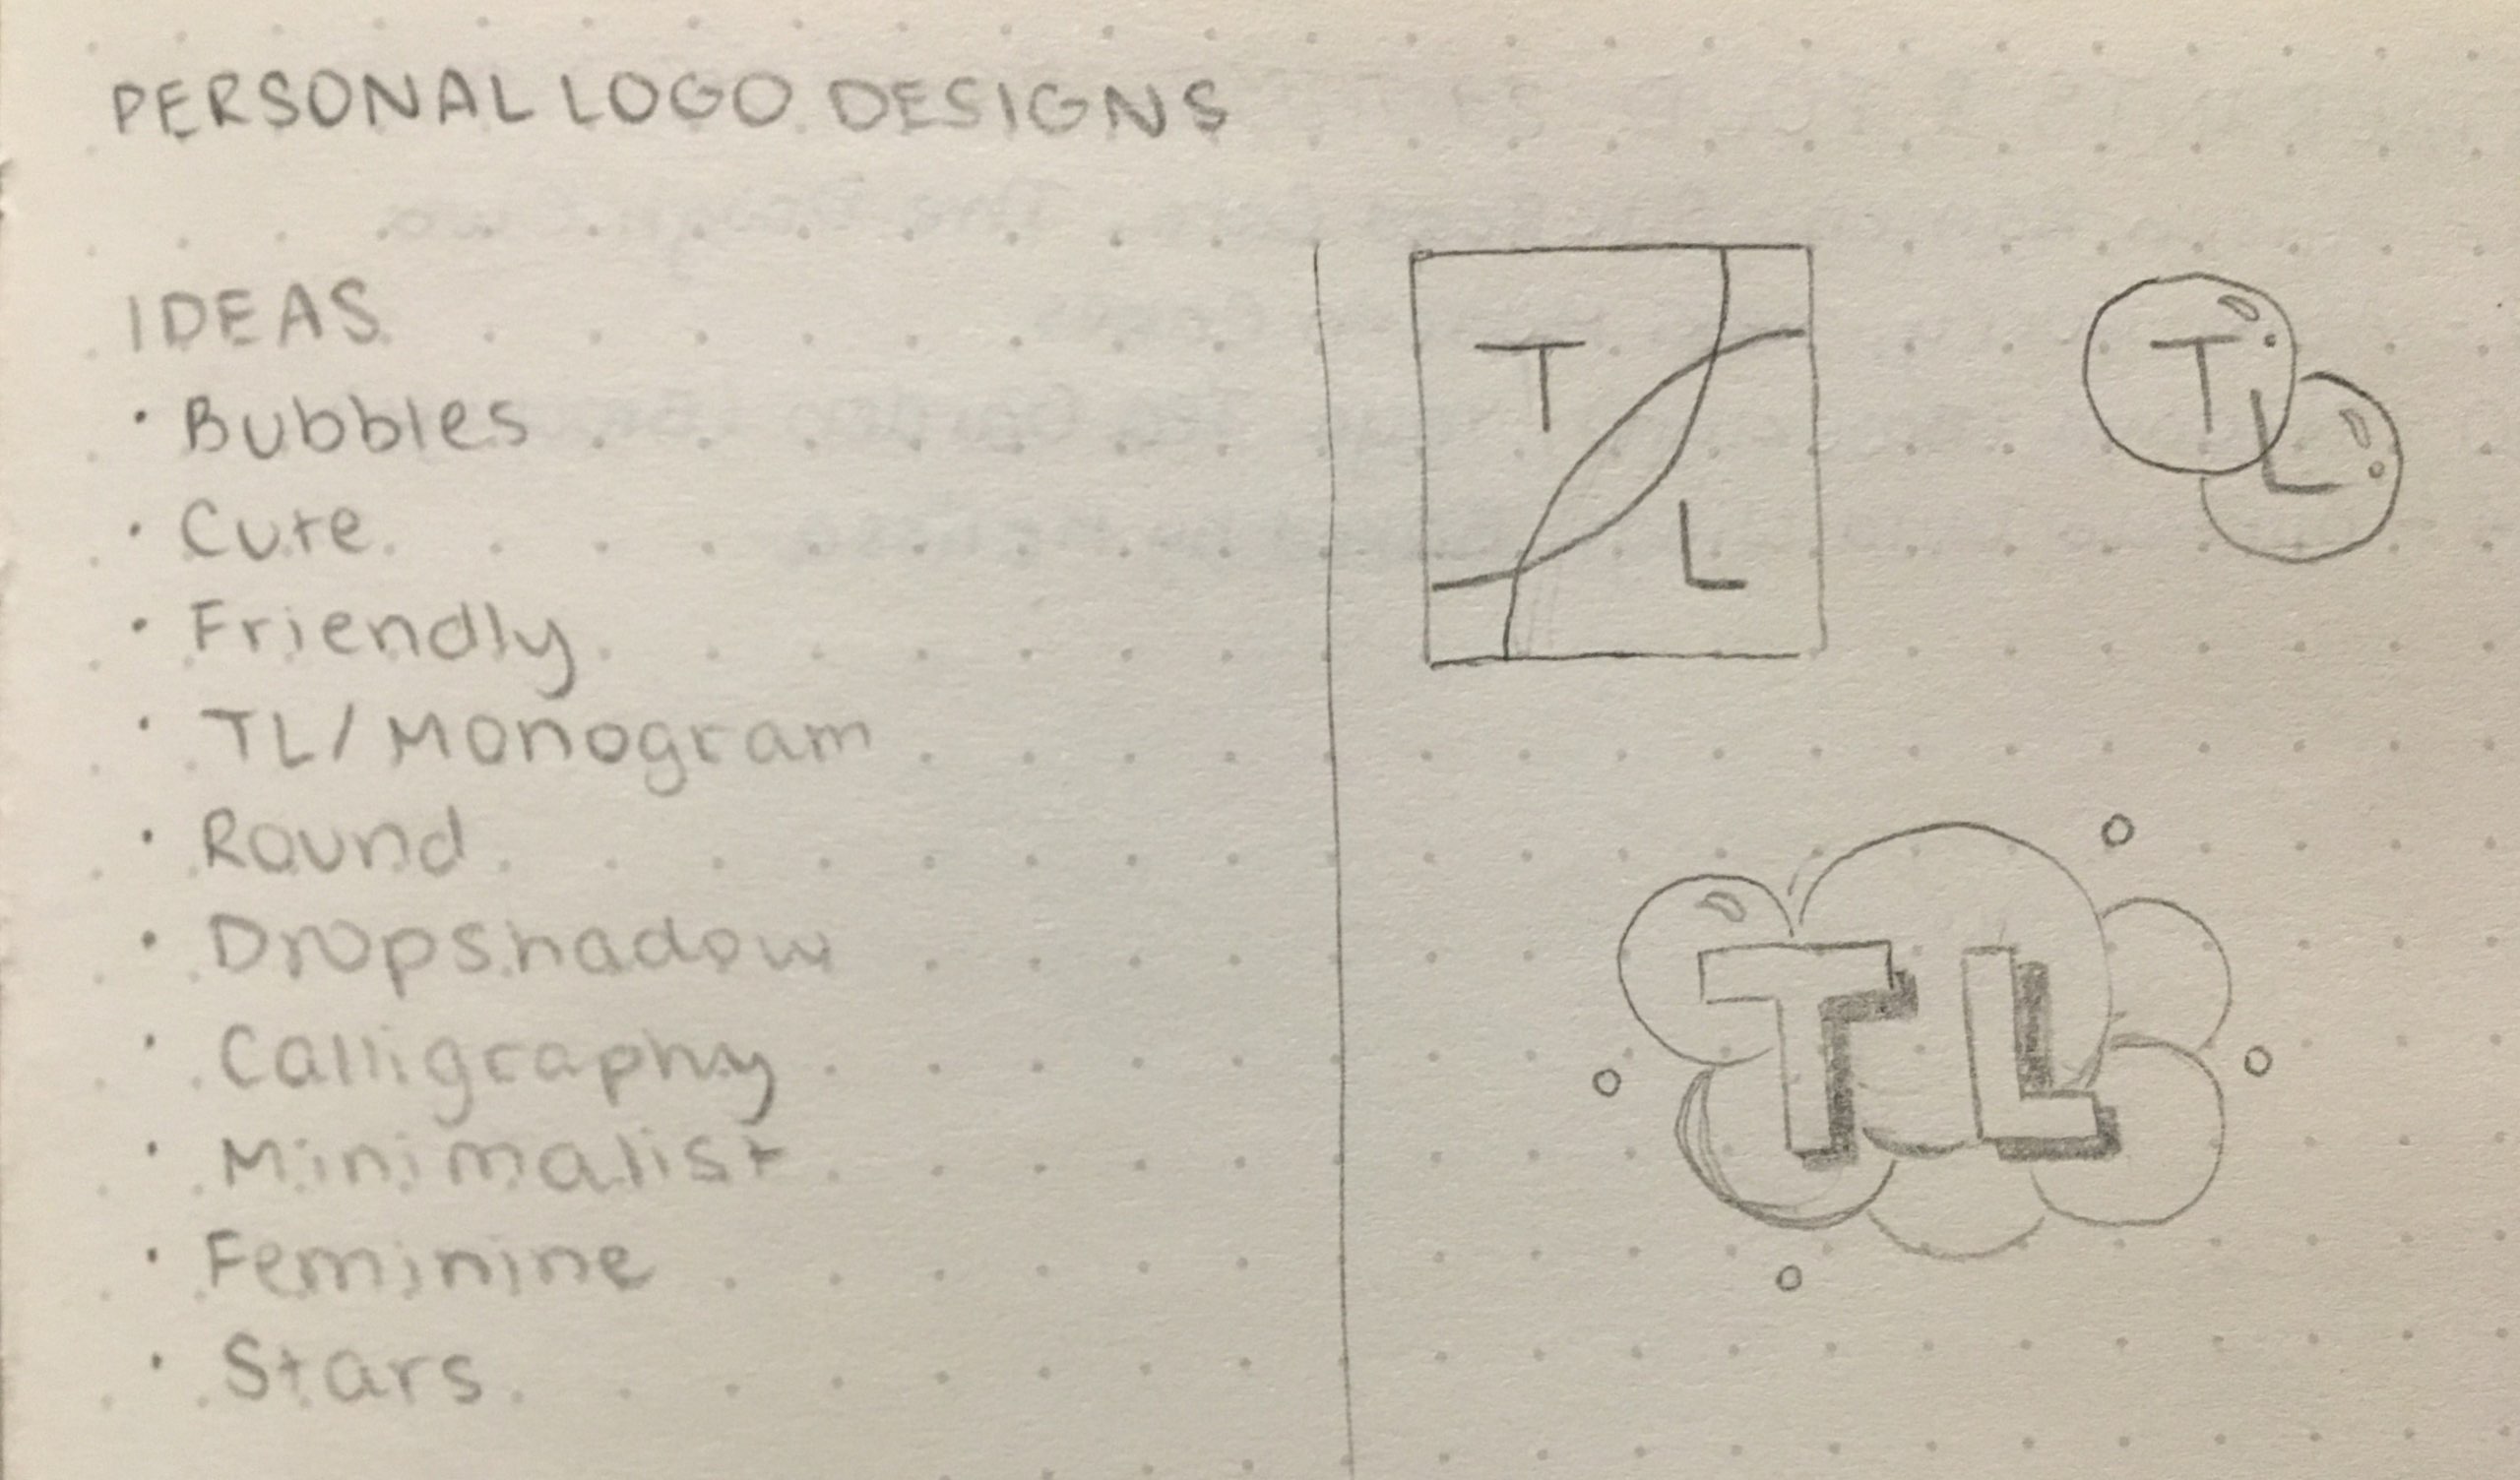 PERSONAL LOGO DESIGNS
IDEAS
• Bubbles
• Cute
• Friendly
• TL/Monogram
• Round
• Dropshadow
• Calligraphy
• Minimalist
• Feminine
• Stars
T
L
T
L
TL